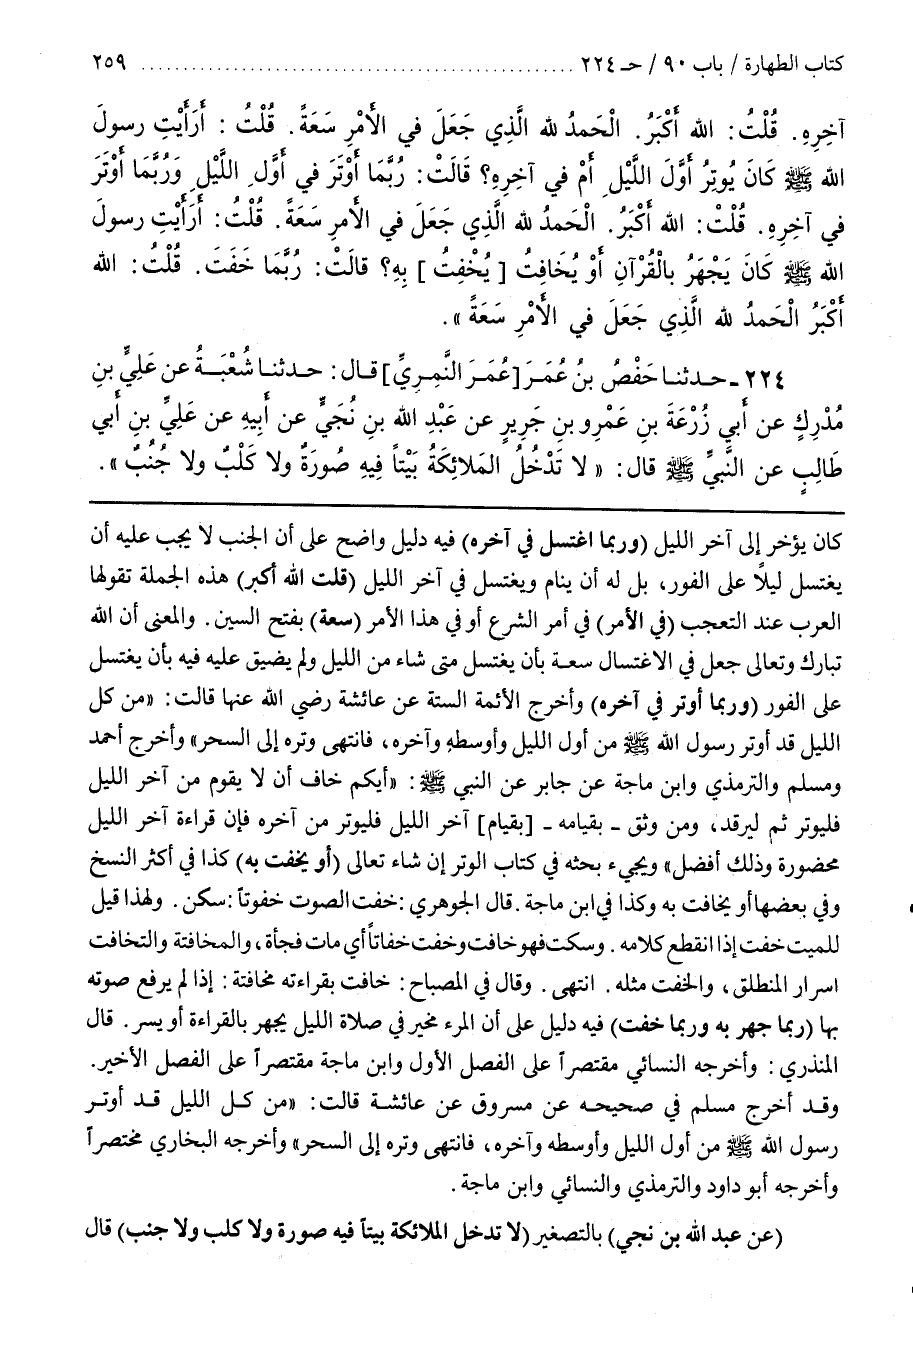 كتاب الطهارة / باب ٩٠ / حـ ٢٢٤ ................................................ ٢٥٩
آخِرِهِ. قُلْتُ: الله أَكْبَرُ. الْحَمدُ لله الَّذِي جَعَلَ في الأَمْرِ سَعَةً. قُلْتُ : أَرَأَيْتِ رسولَ
الله ﷺ كَانَ يُوتِرُ أوَّلَ اللَّيْلِ أَمْ في آخِرِهِ؟ قَالَتْ: رُبَّمَا أوْتَرَ في أَوَّلِ اللَّيْلِ وَرُبَّمَا أَوْتَرَ
في آخِرِهِ. قُلْتُ: الله أَكْبَرُ. الْحَمدُ لله الَّذِي جَعَلَ في الأَمرِ سَعَةً. قُلْتُ: أَرَأَيْتِ رسولَ
الله ﷺ كَانَ يَجْهَرُ بالْقُرْآنِ أَوْ يُخَافِتُ [يُخْفِتُ] بِهِ؟ قالَتْ: رُبَّمَا خَفَتَ. قُلْتُ: الله
أَكْبَرُ الْحَمدُ لله الَّذِي جَعَلَ في الأَمْرِ سَعَةً ».
٢٢٤ ـ حـدثنـا حَفْصُ بنُ عُمَـرَ [عُمَرَ النَّمِـريُّ] قـال: حـدثنـا شُعْبَـةُ عن عَلِيِّ بنِ
مُدْرِكٍ عن أبي زُرْعَةَ بنِ عَمْرِو بنِ جَرِيرٍ عن عَبْدِ الله بنِ نُجَيٍّ عن أبِيهِ عن عَلِيِّ بنِ أبي
طَالِبٍ عن النَّبيِّ ﷺ قال: « لا تَدْخُلُ المَلائِكَةُ بَيْتاً فِيهِ صُورَةٌ ولا كَلْبٌ ولا جُنُبٌ ».
كان يؤخر إلى آخر الليل (وربما اغتسل في آخره) فيه دليل واضح على أن الجنب لا يجب عليه أن
يغتسل ليلاً على الفور، بل له أن ينام ويغتسل في آخر الليل (قلت الله أكبر) هذه الجملة تقولها
العرب عند التعجب (في الأمر) في أمر الشرع أو في هذا الأمر (سعة) بفتح السين. والمعنى أن الله
تبارك وتعالى جعل في الاغتسال سعة بأن يغتسل متى شاء من الليل ولم يضيق عليه فيه بأن يغتسل
على الفور (وربما أوتر في آخره) وأخرج الأئمة الستة عن عائشة رضي الله عنها قالت: «من كل
الليل قد أوتر رسول الله ﷺ من أول الليل وأوسطه وآخره، فانتهى وتره إلى السحر» وأخرج أحمد
ومسلم والترمذي وابن ماجة عن جابر عن النبي ﷺ: «أيكم خاف أن لا يقوم من آخر الليل
فليوتر ثم ليرقد، ومن وثق ـ بقيامه ـ [بقيام] آخر الليل فليوتر من آخره فإن قراءة آخر الليل
محضورة وذلك أفضل» ويجيء بحثه في كتاب الوتر إن شاء تعالى (أو يخفت به) كذا في أكثر النسخ
وفي بعضها أو يخافت به وكذا في ابن ماجة. قال الجوهري: خفت الصوت خفوتاً: سكن. ولهذا قيل
للميت خفت إذا انقطع كلامه. وسكت فهو خافت وخفت خفاتاً أي مات فجأة، والمخافتة والتخافت
اسرار المنطلق، والخفت مثله. انتهى. وقال في المصباح: خافت بقراءته مخافتة: إذا لم يرفع صوته
بها (ربما جهر به وربما خفت) فيه دليل على أن المرء مخير في صلاة الليل يجهر بالقراءة أو يسر. قال
المنذري: وأخرجه النسائي مقتصراً على الفصل الأول وابن ماجة مقتصراً على الفصل الأخير.
وقـد أخرج مسلم في صحيحـه عن مسروق عن عائشـة قالت: «من كـل الليل قـد أوتـر
رسول الله ﷺ من أول الليل وأوسطه وآخره، فانتهى وتره إلى السحر» وأخرجه البخاري مختصراً
وأخرجه أبو داود والترمذي والنسائي وابن ماجة.
(عن عبد الله بن نجي) بالتصغير (لا تدخل الملائكة بيتاً فيه صورة ولا كلب ولا جنب) قال